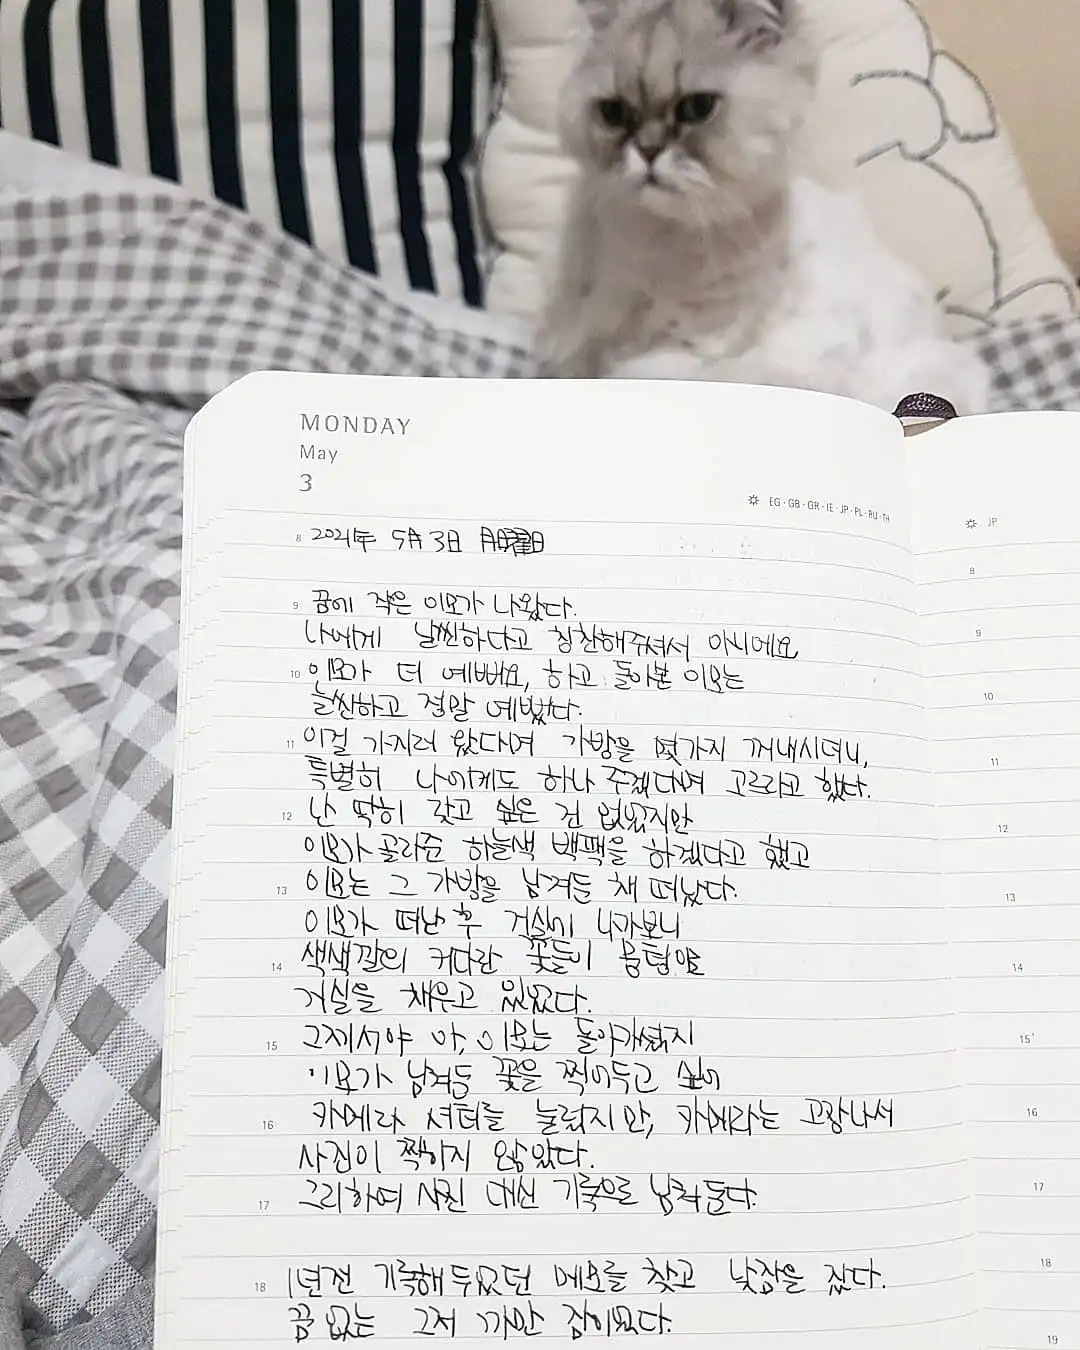 MONDAY
May
3
☼ EG·GB·GR·IE·JP·PL·RU·TH
☼ JP
8 2021年 5月 3日 月曜日
9 꿈에 작은 이모가 나왔다.
나에게 날씬하다고 칭찬해주셔서 아니에요
10 이모가 더 예뻐요, 하고 돌아본 이모는
늘씬하고 정말 예뻤다.
11 이걸 가지러 왔다며 가방을 몇가지 꺼내시더니,
특별히 나에게도 하나 주겠다며 고르라고 했다.
12 난 딱히 갖고 싶은 건 없었지만
이모가 골라준 하늘색 백팩을 하겠다고 했고
13 이모는 그 가방을 남겨둔 채 떠났다.
이모가 떠난 후 거실에 나가보니
14 색색깔의 커다란 꽃들이 몽텅이로
거실을 채우고 있었다.
15 그제서야 아, 이모는 돌아가셨지
이모가 남겨둔 꽃을 찍어두고 싶어
16 카메라 셔터를 눌렀지만, 카메라는 고장나서
사진이 찍히지 않았다.
17 그리하여 사진 대신 기록으로 남겨둔다.
18 1년전 기록해두었던 메모를 찾고 낮잠을 잤다.
꿈 없는 그저 까만 잠이었다.
8
9
10
11
12
13
14
15
16
17
18
19